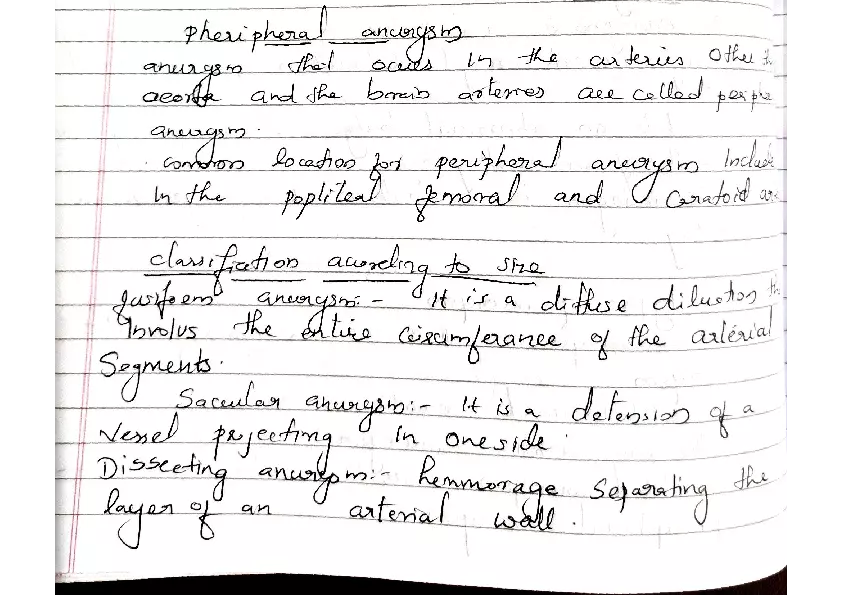 Pheripheral aneurysm
aneurysm that occurs in the arteries Other
aeorta and the brain arteries are called
aneurysm.
common location for peripheral aneurysm Include
In the popliteal femoral and Caratoid
classification according to size
fusifoem aneurysm:- It is a diffuse diluation
Involus the entire ceircumferance of the arterial
Segments.
Saccular aneurysm:- It is a detension of a
Vessel projecting in oneside.
Dissecting aneurysm:- hemmorage Separating the
layer of an arterial wall.